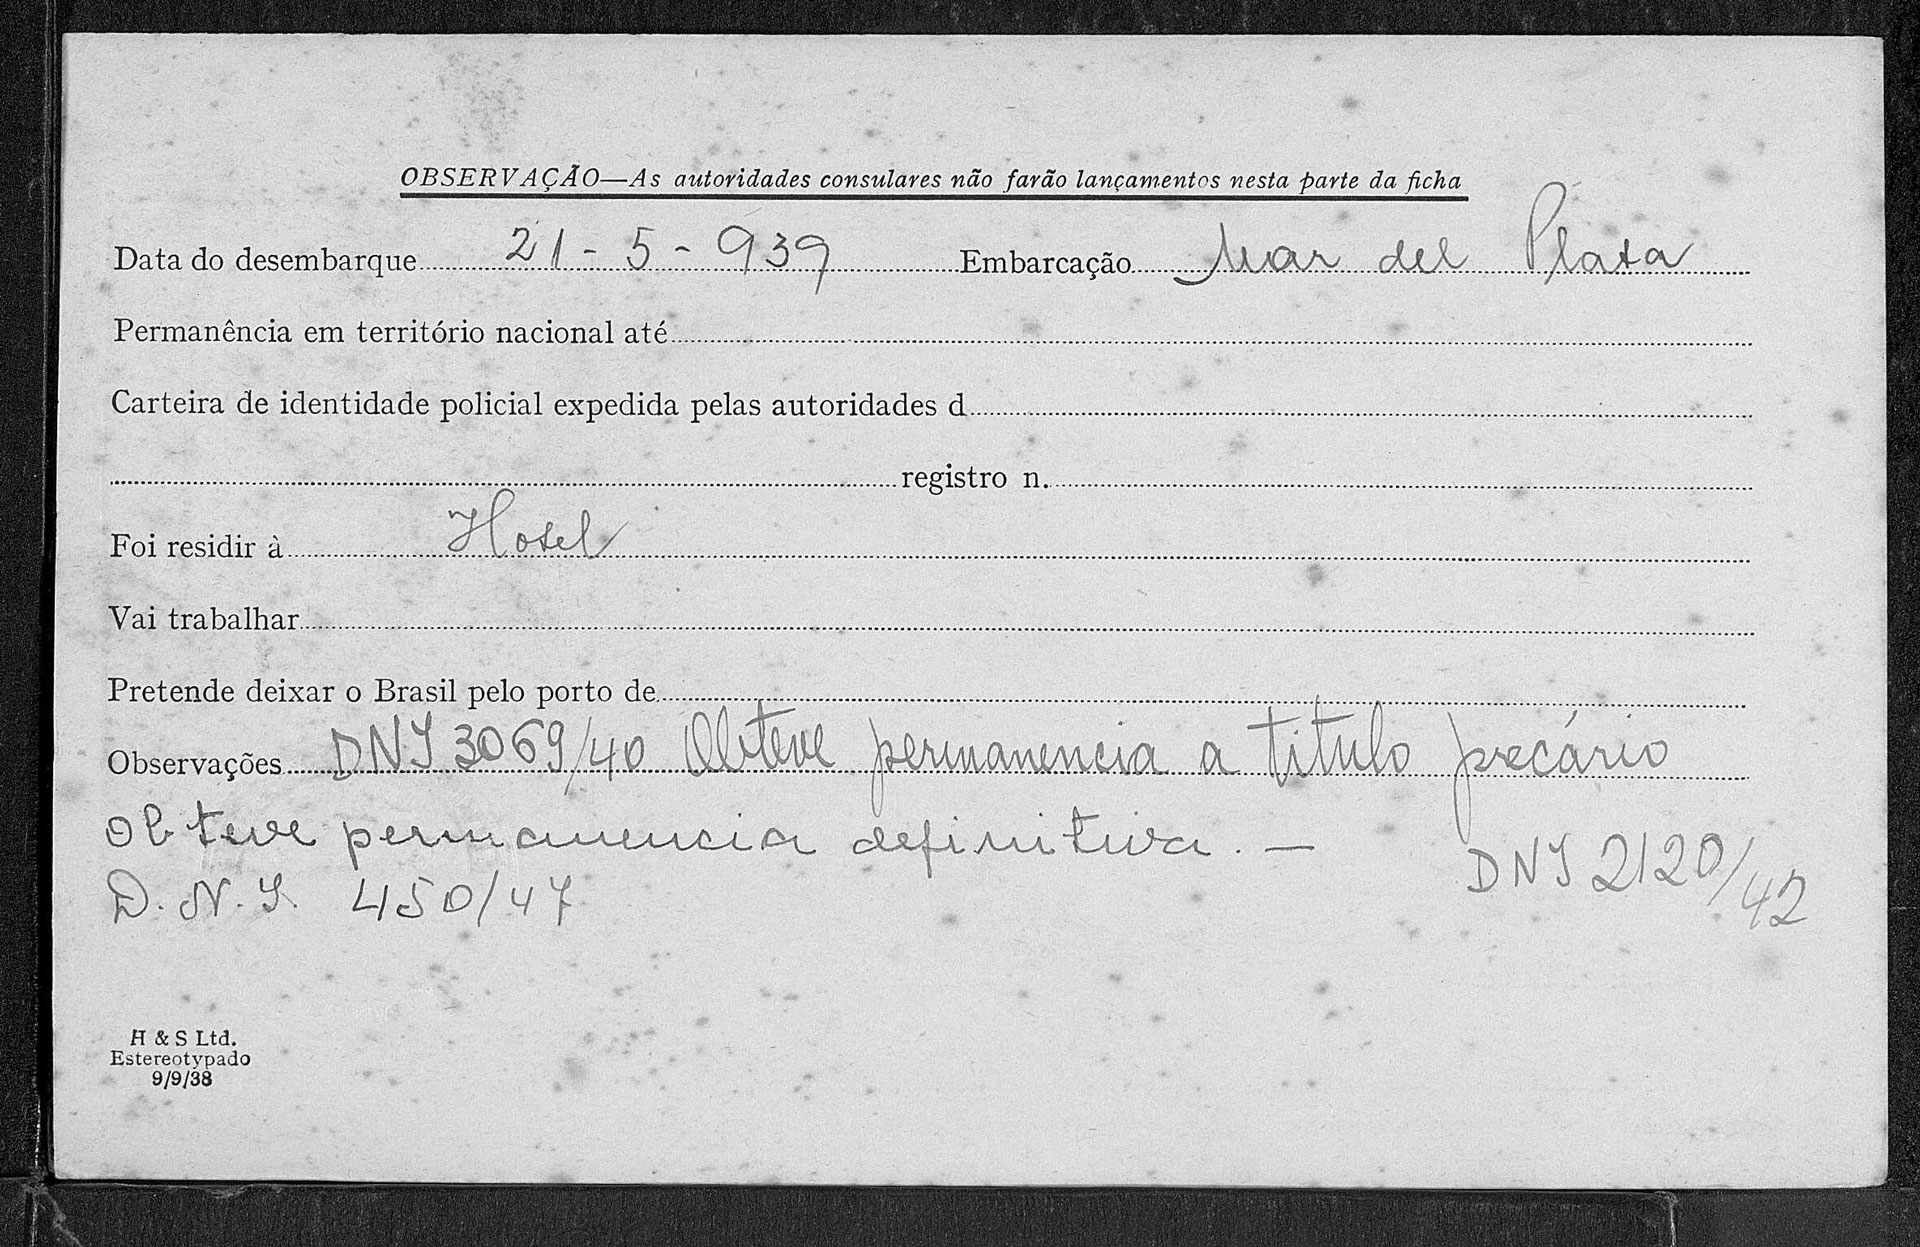 OBSERVAÇÃO—As autoridades consulares não farão lançamentos nesta parte da ficha
Data do desembarque 21-5-939 Embarcação Mar del Plata
Permanência em território nacional até
Carteira de identidade policial expedida pelas autoridades d
registro n.
Foi residir à Hotel
Vai trabalhar
Pretende deixar o Brasil pelo porto de
Observações DNI 3069/40 Obteve permanencia a titulo precário
DNI 2120/42
Obteve permanencia definitiva. —
D. N. I. 450/47
H & S Ltd.
Estereotypado
9/9/38